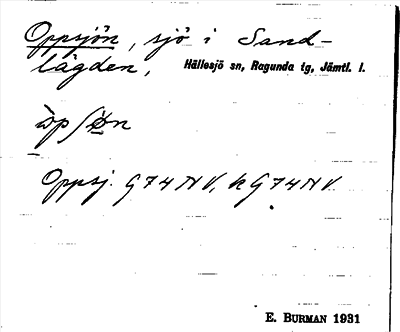 Oppsjön, sjö i Sand-
lägden, Hällesjö sn, Ragunda tg, Jämtl. l.
Oppsj. G74NV, k G74NV.
E. BURMAN 1931